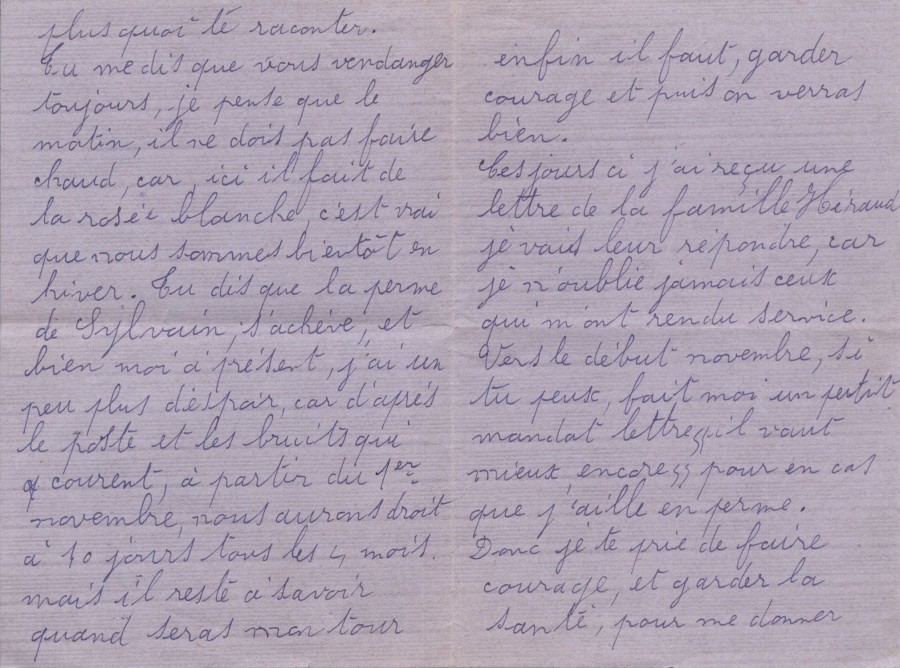 plus quoi te raconter.
Tu me dis que vous vendanger
toujours, je pense que le
matin, il ne dois pas faire
chaud, car, ici il fait de
la rosée blanche, c'est vrai
que nous sommes bientôt en
hiver. Tu dis que la perme
de Sylvain, s'achève, et
bien moi à présent, j'ai un
peu plus d'éspoir, car d'après
le poste et les bruits qui
courent, à partir du 1er
novembre, nous aurons droit
à 10 jours tous les 4 mois.
mais il reste à savoir
quand seras mon tour
enfin il faut, garder
courage et puis on verras
bien.
Ces jours ci j'ai reçu une
lettre de la famille Héraud
je vais leur répondre, car
je n'oublie jamais ceux
qui m'ont rendu service.
Vers le début novembre, si
tu peux, fait moi un petit
mandat lettre, il vaut
mieux, encore pour en cas
que j'aille en perme.
Donc je te prie de faire
courage, et garder la
santé, pour me donner